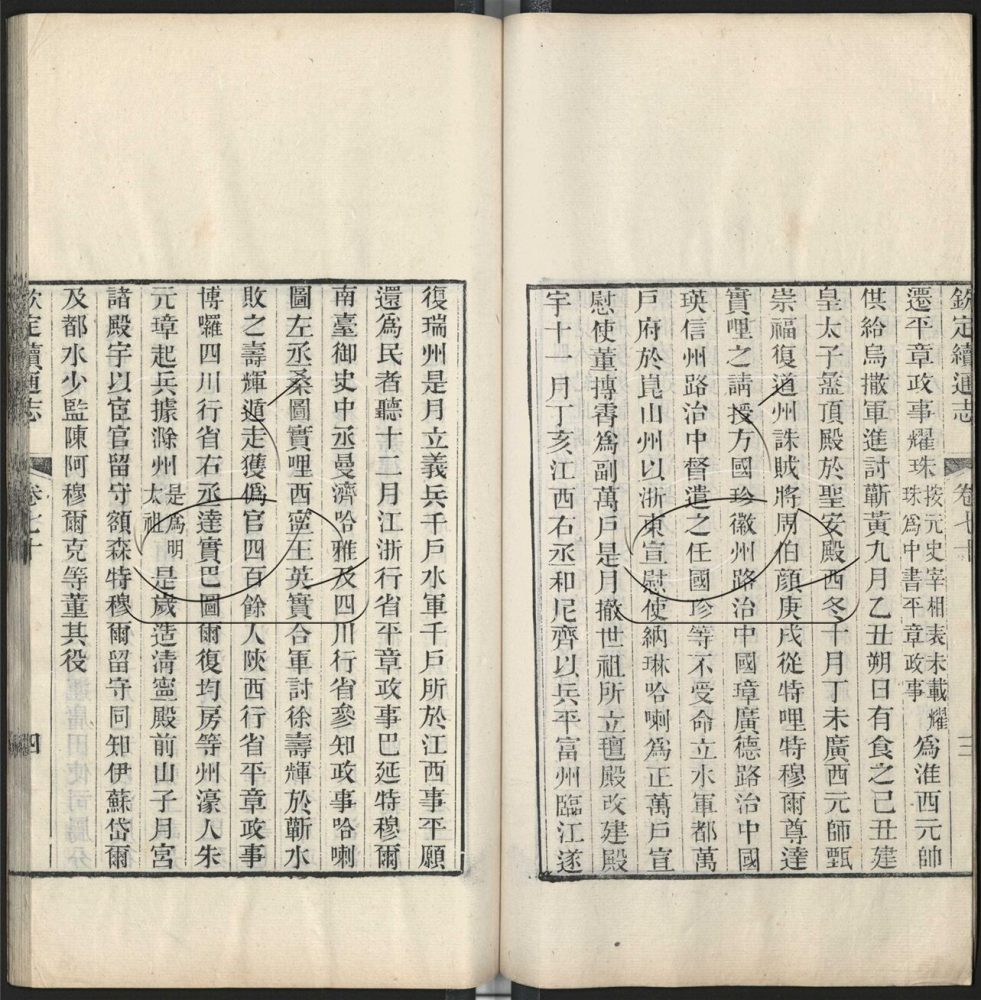 欽定續通志 卷七十 三
遷平章政事耀珠按元史宰相表未載耀珠為中書平章政事為淮西元帥
供給烏撒軍進討蘄黃九月乙丑朔日有食之己丑建
皇太子盝頂殿於聖安殿西冬十月丁未廣西元師甄
崇福復道州誅賊將周伯顏庚戌從特哩特穆爾尊達
實哩之請授方國珍徽州路治中國璋廣德路治中國
瑛信州路治中督遣之任國珍等不受命立水軍都萬
戶府於崑山州以浙東宣慰使納琳哈喇為正萬戶宣
慰使董摶霄為副萬戶是月撤世祖所立氊殿改建殿
宇十一月丁亥江西右丞和尼齊以兵平富州臨江遂
復瑞州是月立義兵千戶水軍千戶所於江西事平願
還為民者聽十二月江浙行省平章政事巴延特穆爾
南臺御史中丞曼濟哈雅及四川行省參知政事哈喇
圖左丞桑圖實哩西寧王英實合軍討徐壽輝於蘄水
敗之壽輝遁走獲偽官四百餘人陝西行省平章政事
博囉四川行省右丞達實巴圖爾復均房等州濠人朱
元璋起兵據滁州是為明太祖是歲造清寧殿前山子月宮
諸殿宇以宦官留守額森特穆爾留守同知伊蘇岱爾
及都水少監陳阿穆爾克等董其役
欽定續通志 卷七十 四